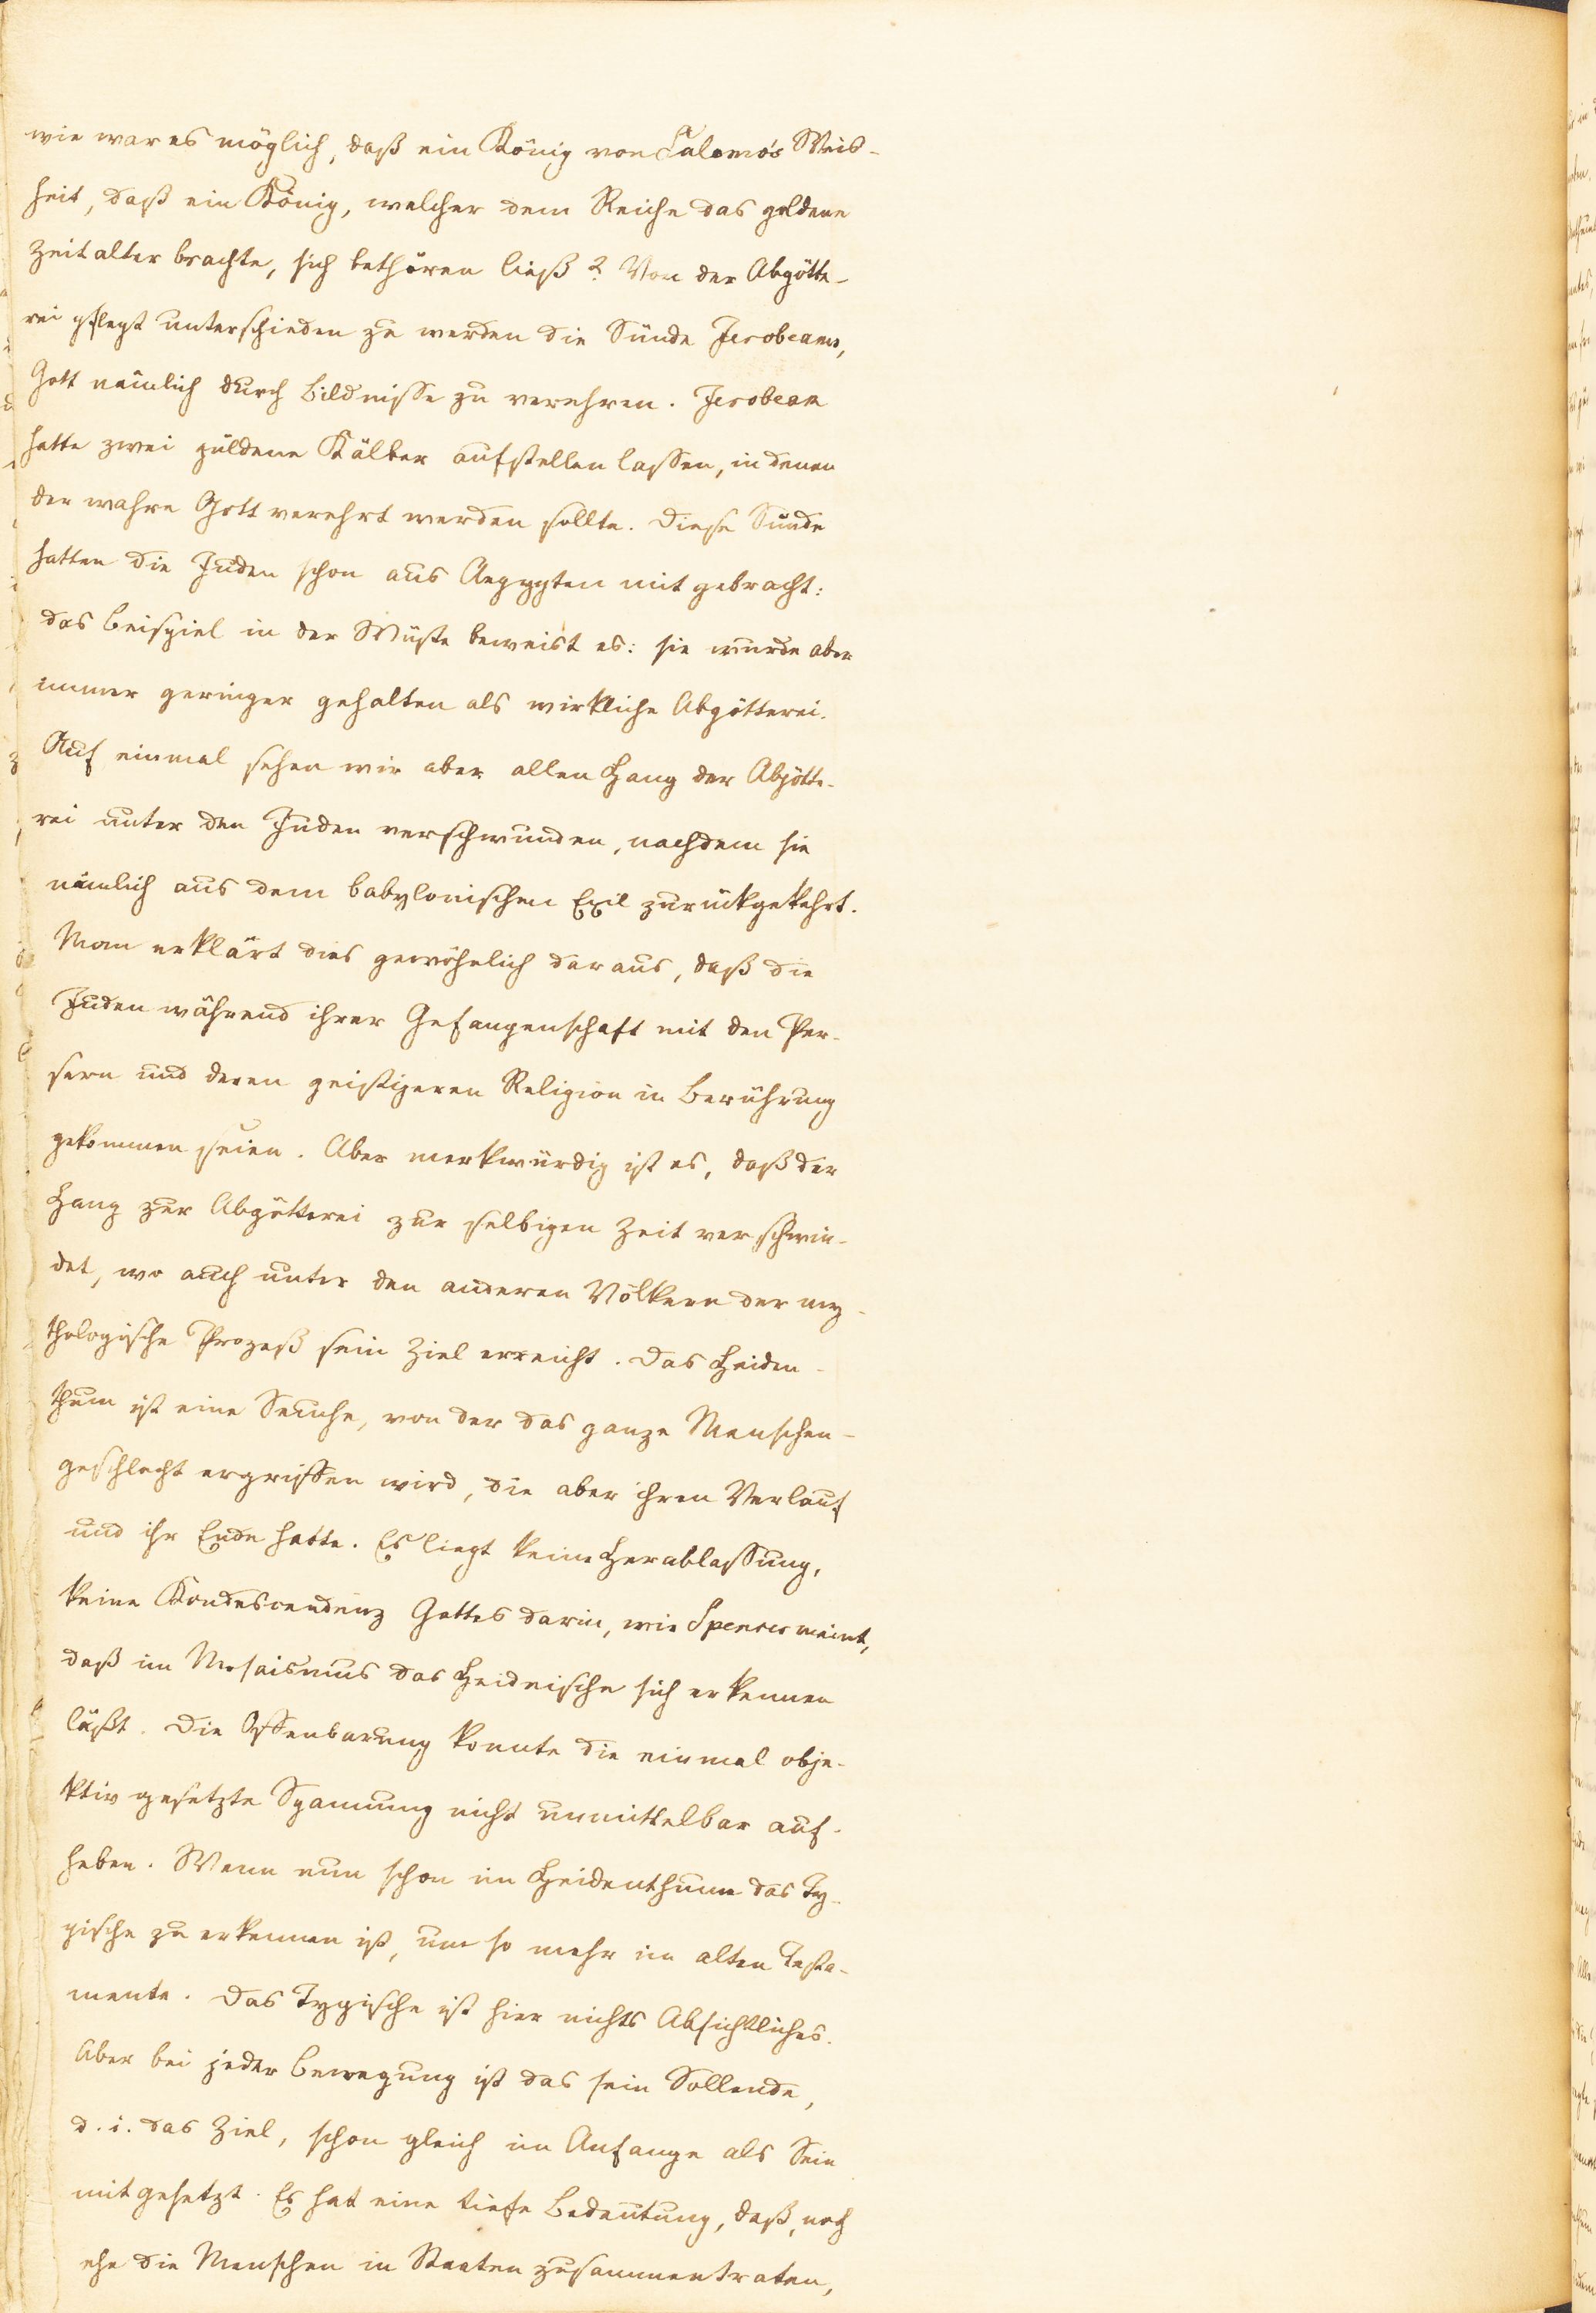 wie war es möglich, daß ein König von Salomo's Weis-
heit, daß ein König, welcher dem Reiche das goldene
Zeitalter brachte, sich bethören ließ? Von der Abgötte-
rei pflegt unterschieden zu werden die Sünde Jerobeams,
Gott nämlich durch Bildnisse zu verehren. Jerobeam
hatte zwei güldene Kälber aufstellen lassen, in denen
der wahre Gott verehrt werden sollte. Diese Sünde
hatten die Juden schon aus Aegypten mit gebracht:
das Beispiel in der Wüste beweist es: sie wurde aber
immer geringer gehalten als wirkliche Abgötterei.
Auf einmal sehen wir aber allen Hang der Abgötte-
rei unter den Juden verschwunden, nachdem sie
nämlich aus dem babylonischen Exil zurückgekehrt.
Man erklärt dies gewöhnlich daraus, daß die
Juden während ihrer Gefangenschaft mit den Per-
sern und deren geistigeren Religion in Berührung
gekommen seien. Aber merkwürdig ist es, daß der
Hang zur Abgötterei zur selbigen Zeit verschwin-
det, wo auch unter den anderen Völkern der my-
thologische Prozeß sein Ziel erreicht. Das Heiden-
thum ist eine Seuche, von der das ganze Menschen-
geschlecht ergriffen wird, die aber ihren Verlauf
und ihr Ende hatte. Es liegt keine Herablassung,
keine Kondescendenz Gottes darin, wie Spencer meint,
daß im Mosaismus das Heidnische sich erkennen
läßt. Die Offenbarung konnte die einmal obje-
ktiv gesetzte Spannung nicht unmittelbar auf-
heben. Wenn nun schon im Heidenthum das Ty-
pische zu erkennen ist, um so mehr im alten Testa-
mente. Das Typische ist hier nichts Absichtliches.
Aber bei jeder Bewegung ist das sein Sollende,
d. i. das Ziel, schon gleich im Anfange als Sein
mit gesetzt. Es hat eine tiefe Bedeutung, daß, noch
ehe die Menschen in Staaten zusammentraten,